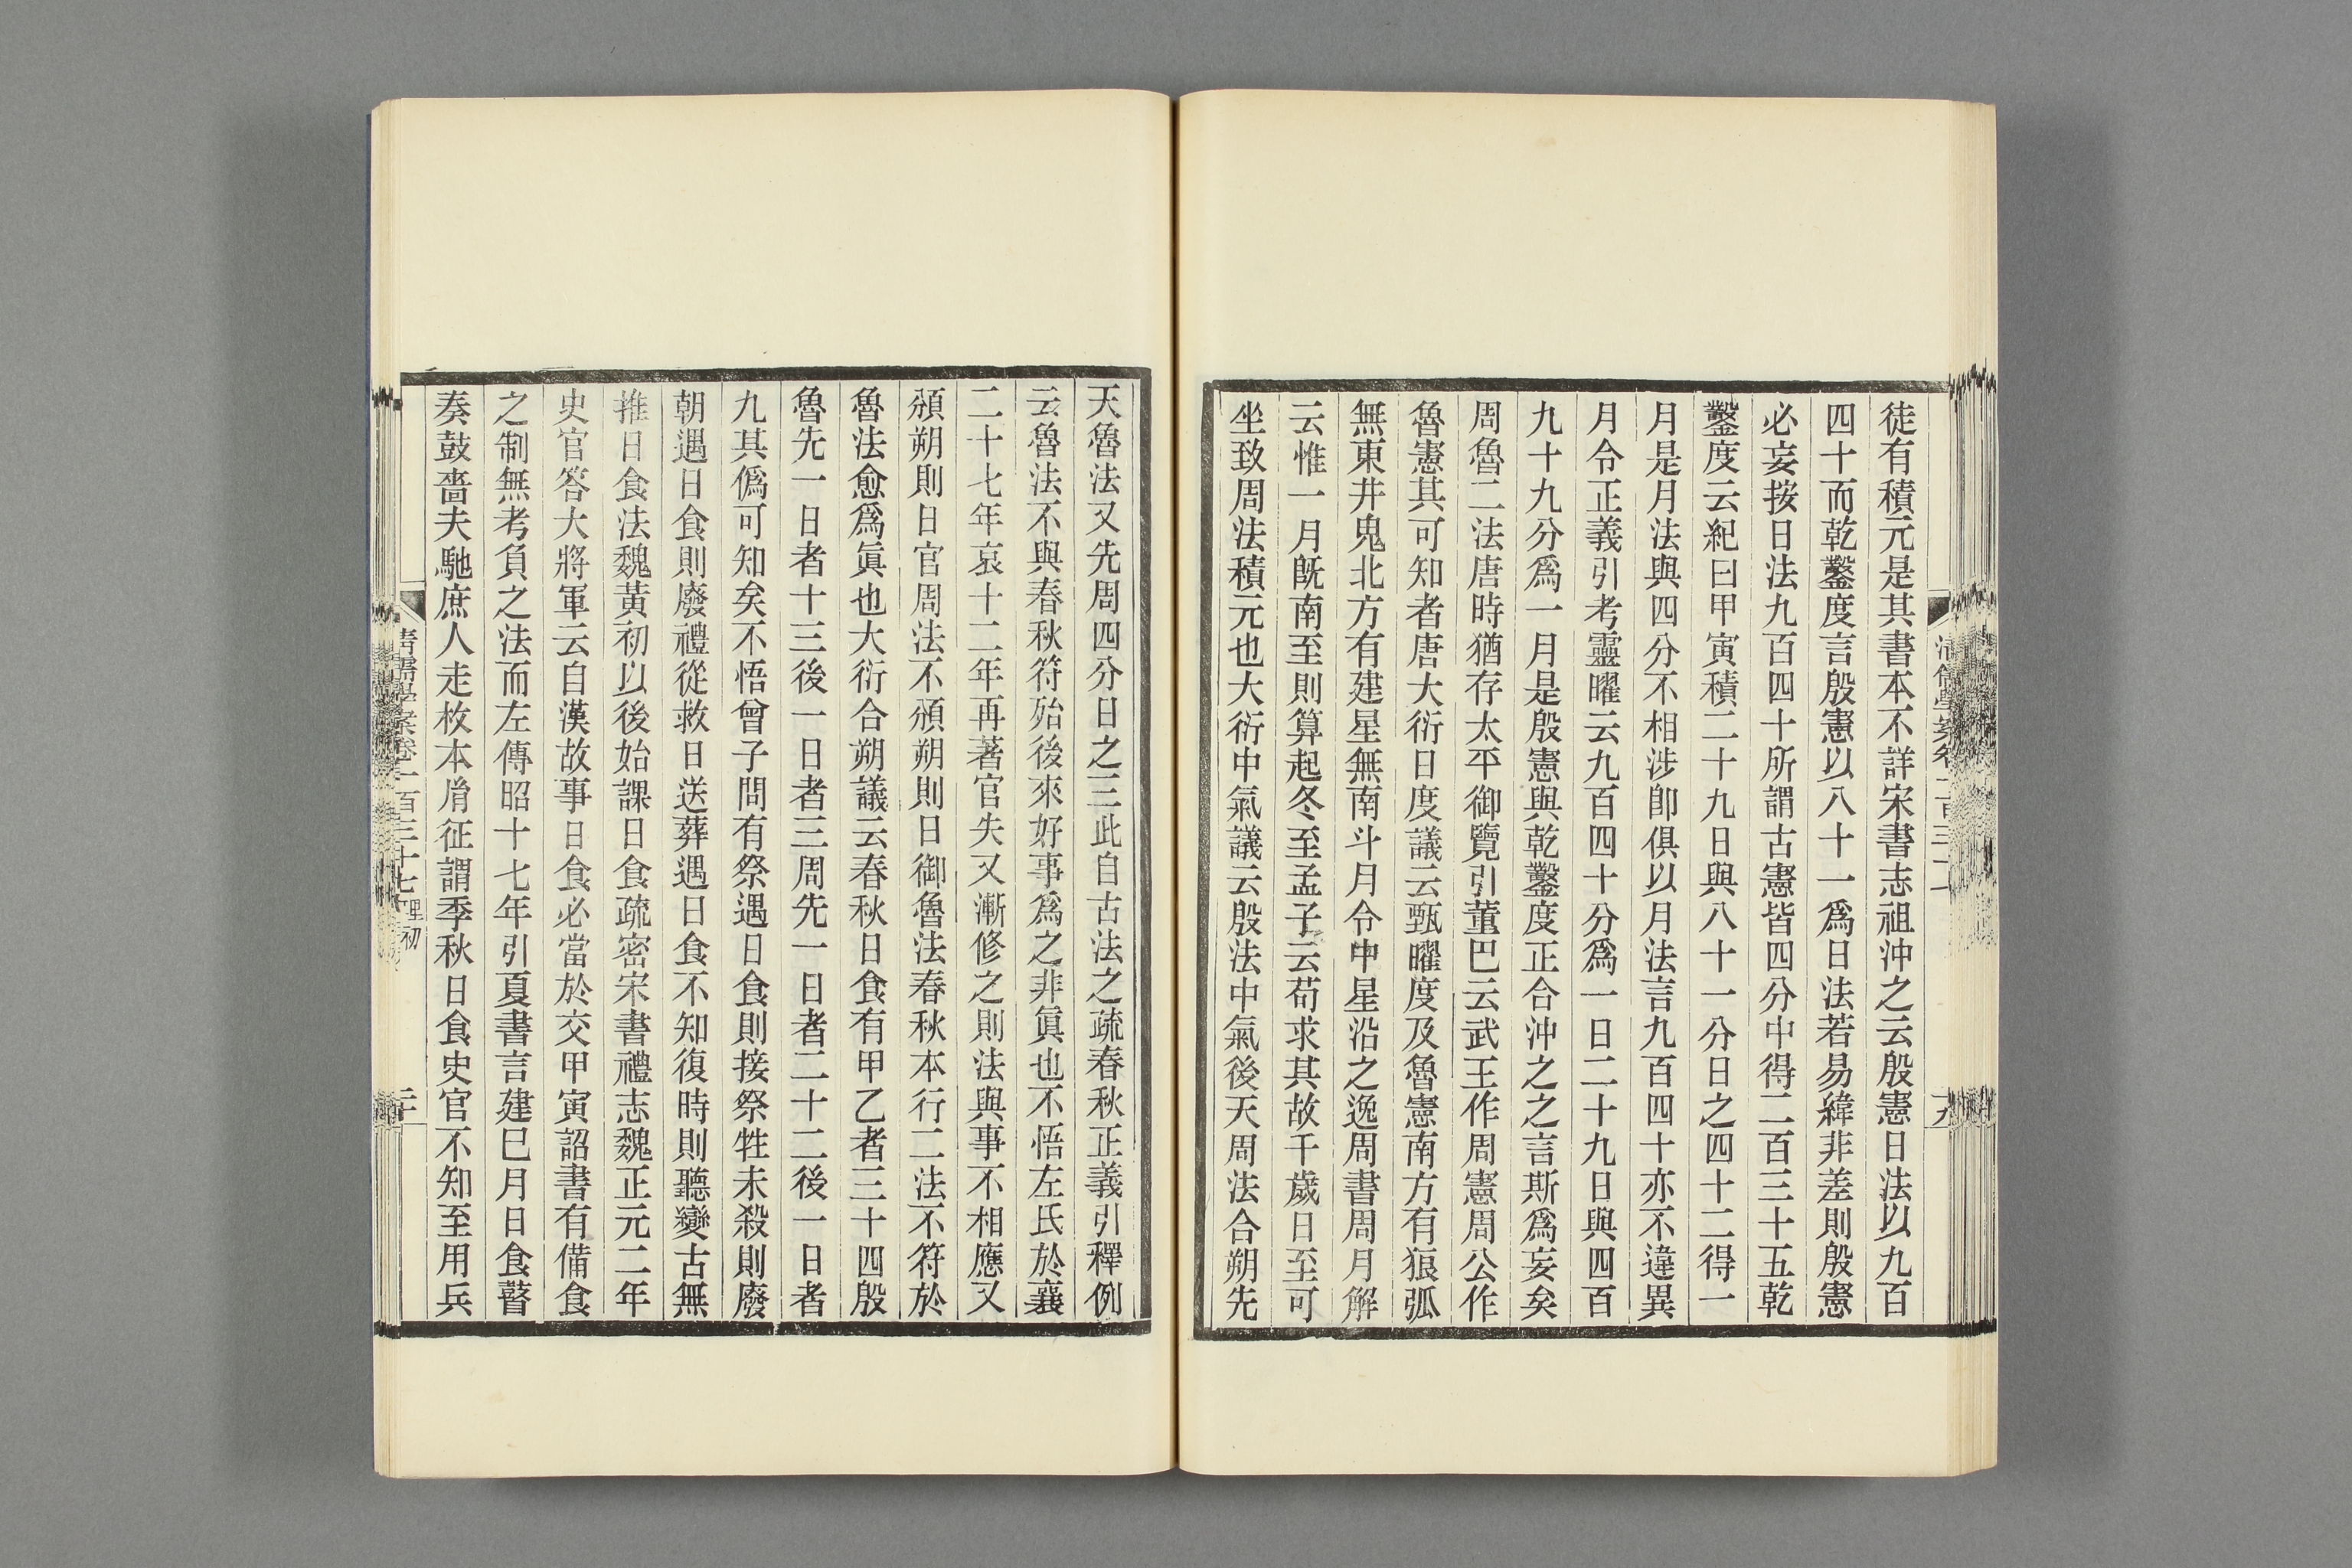 徒有積元是其書本不詳宋書志祖沖之云殷憲日法以九百
四十而乾鑿度言殷憲以八十一爲日法若易緯非差則殷憲
必妄按日法九百四十所謂古憲皆四分中得二百三十五乾
鑿度云紀日甲寅積二十九日與八十一分日之四十二得一
月是月法與四分不相涉卽俱以月法言九百四十亦不違異
月令正義引考靈曜云九百四十分爲一日二十九日與四百
九十九分爲一月是殷憲與乾鑿度正合沖之之言斯爲妄矣
周魯二法唐時猶存太平御覽引董巴云武王作周憲周公作
魯憲其可知者唐大衍日度議云甄曜度及魯憲南方有狼弧
無東井鬼北方有建星無南斗月令中星沿之逸周書周月解
云惟一月旣南至則算起冬至孟子云苟求其故千歲日至可
坐致周法積元也大衍中氣議云殷法中氣後天周法合朔先
天魯法又先周四分日之三此自古法之疏春秋正義引釋例
云魯法不與春秋符殆後來好事爲之非眞也不悟左氏於襄
二十七年哀十二年再著官失又漸修之則法與事不相應又
頒朔則日官周法不頒朔則日御魯法春秋本行二法不符於
魯法愈爲眞也大衍合朔議云春秋日食有甲乙者三十四殷
魯先一日者十三後一日者三周先一日者二十二後一日者
九其僞可知矣不悟曾子問有祭遇日食則接祭牲未殺則廢
朝遇日食則廢禮從救日送葬遇日食不知復時則聽變古無
推日食法魏黃初以後始課日食疏密宋書禮志魏正元二年
史官答大將軍云自漢故事日食必當於交甲寅詔書有備食
之制無考負之法而左傳昭十七年引夏書言建巳月日食瞽
奏鼓嗇夫馳庶人走枚本胤征謂季秋日食史官不知至用兵
清儒學案卷一百三十七 理初